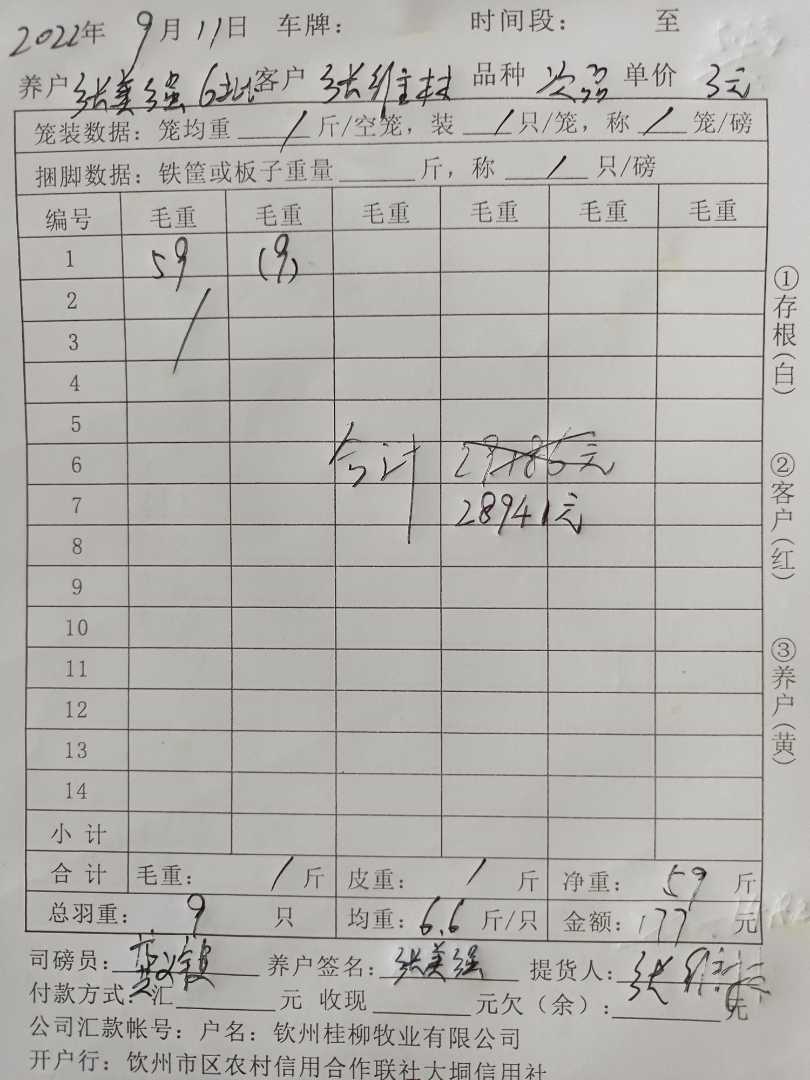 2022年 9月 11日 车牌: 时间段: 至
养户 张美强 6批 客户 张维 品种 次品 单价 3元
笼装数据: 笼均重 / 斤/空笼, 装 / 只/笼, 称 / 笼/磅
捆脚数据: 铁筐或板子重量 斤, 称 / 只/磅
编号 毛重 毛重 毛重 毛重 毛重 毛重
1 59 (9)
2 /
3
4
5
6 合计
7 28941元
8
9
10
11
12
13
14
小计
合计 毛重: / 斤 皮重: / 斤 净重: 59 斤
总羽重: 9 只 均重: 6.6 斤/只 金额: 177 元
司磅员: 养户签名: 张美强 提货人: 张维
付款方式: 汇 元 收现 元欠(余): 元
公司汇款帐号: 户名: 钦州桂柳牧业有限公司
开户行: 钦州市区农村信用合作联社大垌信用社
①存根(白)
②客户(红)
③养户(黄)